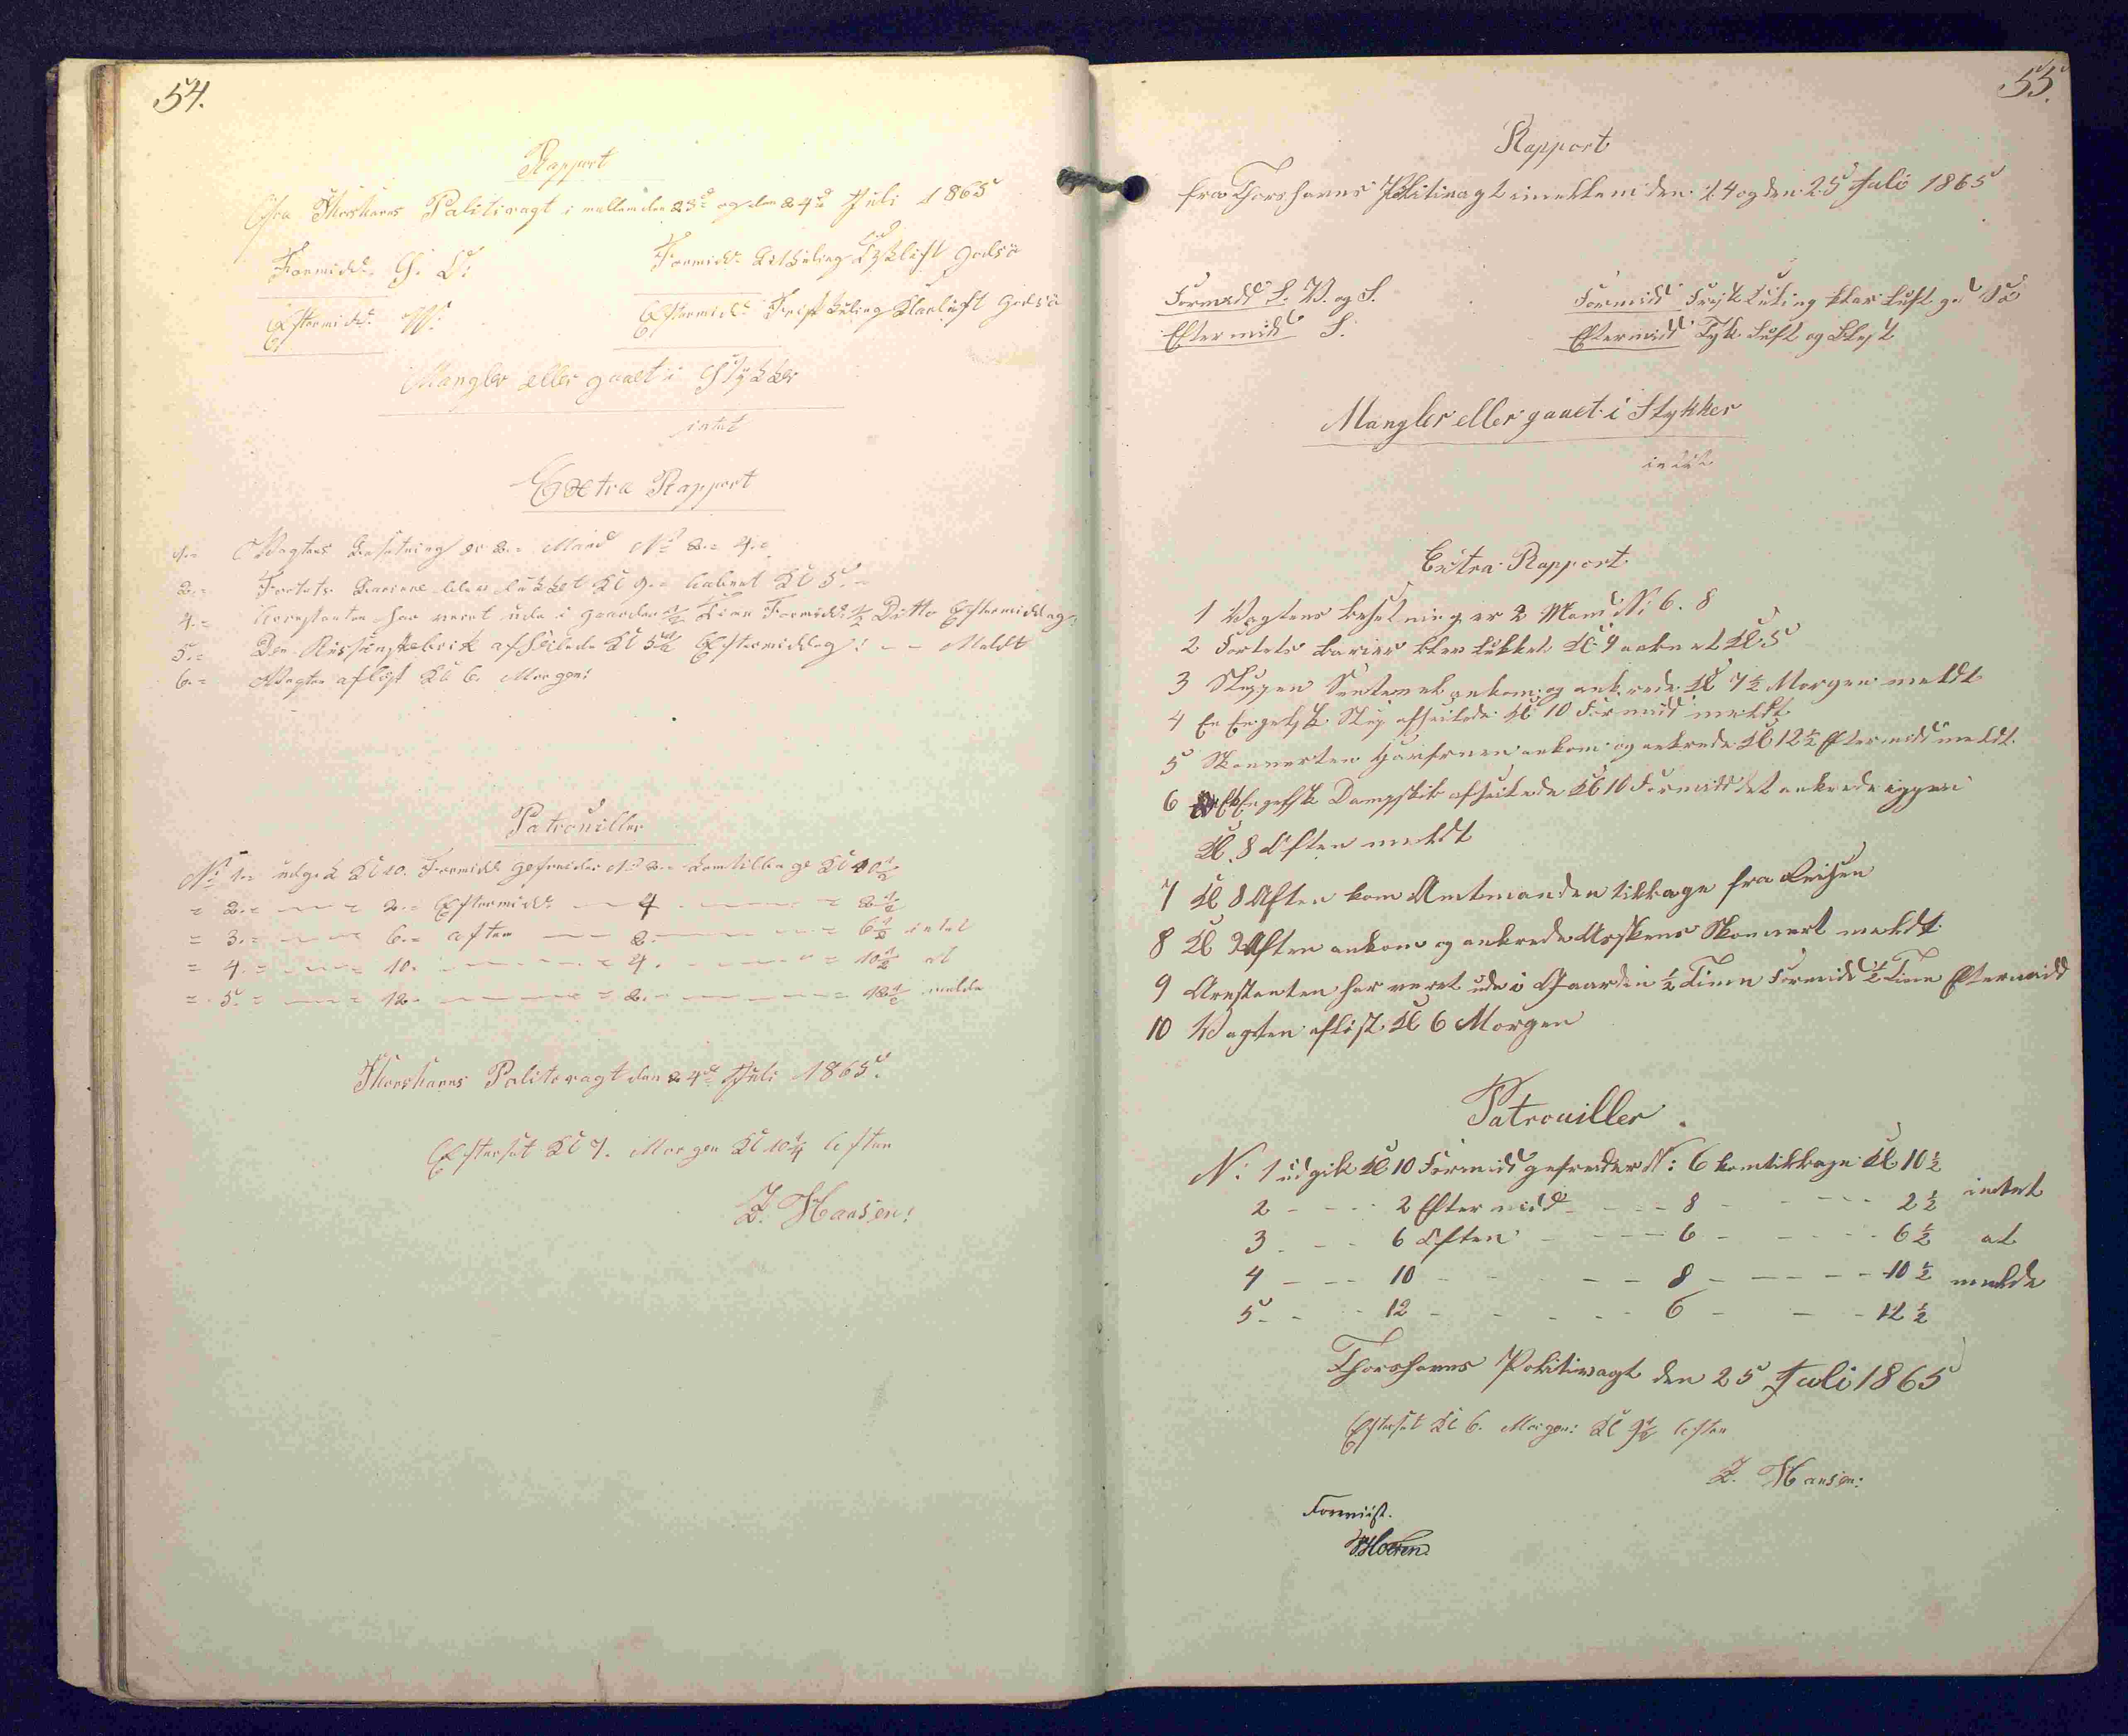 54.
Rapport
fra Thorshavns Politivagt i mellem den 23d og den 24d Juli 1865
Formidd. S. O:
Formidd. Kuling Tyk luft god sö
Eftermidd. W:
Eftermidd. Frisk Kuling Klar luft god sö
Mangler eller gaaet i Stykker
intet
Extra Rapport
1. Vagtens Besetning er 2. Mand No 2. 4.
2. Fortets Bariere blev lukket Kl 9. aabnet Kl 5.
4. Arrestanten har veret ude i gaarden 1/2 Time Formidd: 1/2 Ditto Eftermiddag.
5. Den Russiske brik afseilede Kl 5 1/2 Eftermiddag: - - Meldt
6. Vagten aflöst Kl 6. Morgen:
Patrouiller
No 1. udgik Kl 10. Formidd. gefreider No 2. kom tilbage Kl 10 1/2
= 2. = 2. Eftermidd: 4 = 2 1/2
= 3. = 6. aften 2. = 6 1/2 intet
= 4. = 10. = 4. = 10 1/2 at
= 5. = 12. = 2. = 12 1/2 melde
Thorshavns Politivagt den 24d Juli 1865.
Efterset Kl 7. Morgen Kl 10 1/4 Aften
Z. Hansen:
55.
Rapport
fra Thorshavns Politivagt imellem den 24 og den 25 Juli 1865
Formidd S. V. og S.
Formidd Frisk Kuling klar Luft god Sö
Eftermidd S.
Eftermidd Tyk Luft og Blest
Mangler eller gaaet i Stykker
intet
Extra Rapport
1 Vagtens besetning er 2 Mand N: 6. 8
2 Fortets Barier blev lukket Kl: 9 aabnet Kl: 5
3 Sluppen ankom og ankrede Kl 7 1/2 Morgen meldt
4 En Engelsk Slup afseilede Kl 10 Formidd meldt
5 Skonnerten Havfruen ankom og ankrede Kl 12 1/2 Eftermidd meldt.
6 Et Engelsk Dampskib afseilede Kl 10 Formidd det ankrede iggen
Kl. 8 Aften meldt
7 Kl 8 Aften kom Amtmanden tilbage fra Reisen
8 Kl 9 Aften ankom og ankrede Skonnert meldt
9 Arestanten har veret ude i Gaarden 1/2 Time Formidd 1/2 Time Eftermidd
10 Vagten aflöst Kl 6 Morgen
Patrouiller.
N: 1 udgik Kl 10 Formidd gefreider N: 6 kom tilbage Kl 10 1/2
2 - - - 2 Eftermidd - - - 8 - - - - 2 1/2 intet
3 - - - 6 Aften - - - 6 - - - - 6 1/2 at
4 - - - 10 - - - - 8 - - - - 10 1/2 melde
5 - - 12 - - - - 6 - - - 12 1/2
Thorshavns Politivagt den 25 Juli 1865
Efterset Kl 6. Morgen: Kl 9 1/2 Aften
Z. Hansen:
Foreviist.